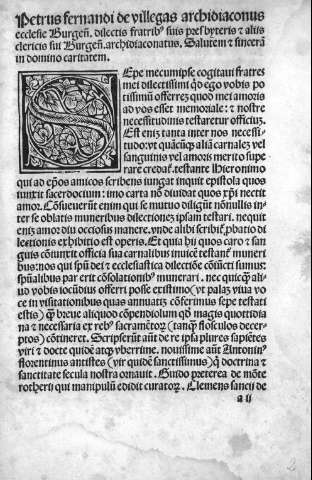 Petrus fernandi de villegas archidiaconus
ecclesie Burgeñ. dilectis fratribꝰ suis presbyteris ⁊ aliis
clericis sui Burgeñ. archidiaconatus. Salutem ⁊ sincerã
in domino caritatem.
SEpe mecum ipse cogitaui fratres
mei dilectissimi qd ego vobis po
tissimũ offerrez quod mei amoris
ad vos esset memoriale: ⁊ nostre
necessitudinis testaretur officiuz.
Est eniz tanta inter nos necessi
tudo: vt quãcũqꝫ aliã carnalez vel
sanguinis vel amoris merito supe
rare credaꝫ. testante Hieronimo
qui ad epõs amicos scribens iungat inquit epistola quos
iunxit sacerdocium: imo carta nõ diuidat quos xp̃i nectit
amor. Cõsueuerũt enim qui se mutuo diligũt nõnullis in
ter se oblatis muneribus dilectionez ipsam testari. nequit
eniz amor diu occiosus manere. vnde alibi scribiť ꝓbatio di
lectionis exhibitio est operis. Et quia hij quos caro ⁊ san
guis cõiunxit officia sua carnalibus inuicẽ testanť muneri
bus: nos qui spũ dei ⁊ ecclesiastica dilectiõe cõiũcti sumus
spũalibus par erit cõsolatiõibꝰ munerari. nec quicqꝫ ali
ud vobis iocũdius offerri posse existimo (vt palaz viua vo
ce in visitationibus quas annuatz cõferimus sepe testati
estis) ꝙ breue aliquod cõpendiolum qd magis quottidia
na ⁊ necessaria ex rebꝰ sacramẽtoꝝ (tanqꝫ flosculos decer
ptos) cõtineret. Scripserũt aũt de re ipsa plures sapiẽtes
viri ⁊ docte quidẽ atqꝫ vberrime. nouissime aũt Antoninꝰ
florentinus antistes (vir quidẽ sanctissimus) ꝗ doctrina ⁊
sanctitate secula nostra ornauit. Guido preterea de mõte
rotherii qui manipulũ edidit curatoꝝ. Clemens sancij de
a ij